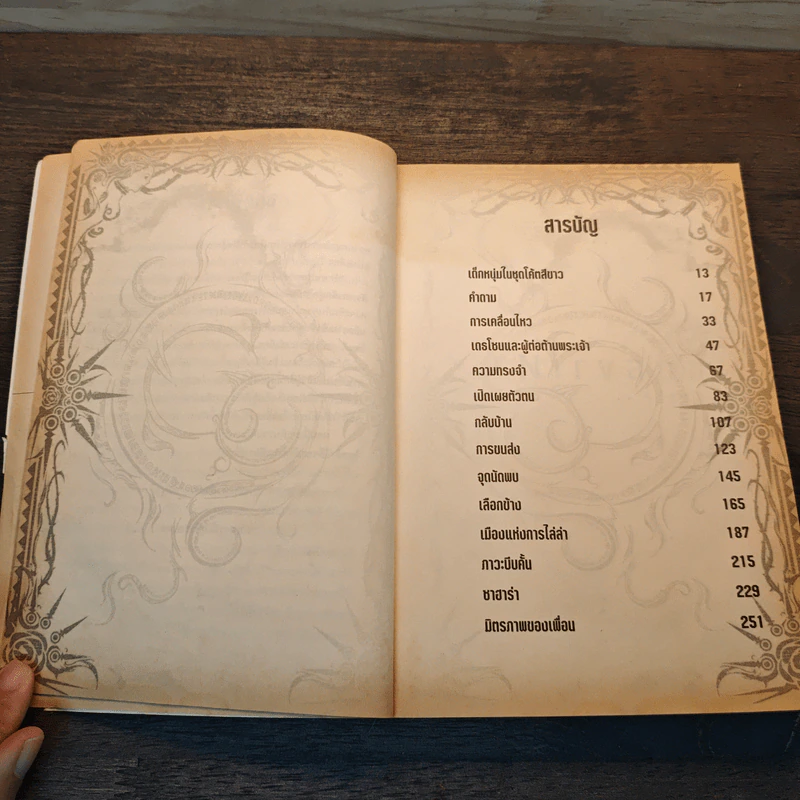 สารบัญ
เด็กหนุ่มในชุดโค้ตสีขาว 13
คำถาม 17
การเคลื่อนไหว 33
เดรโชนและผู้ต่อต้านพระเจ้า 47
ความทรงจำ 67
เปิดเผยตัวตน 83
กลับบ้าน 107
การขนส่ง 123
จุดนัดพบ 145
เลือกข้าง 165
เมืองแห่งการไล่ล่า 187
ภาวะบีบคั้น 215
ซาฮาร่า 229
มิตรภาพของเพื่อน 251